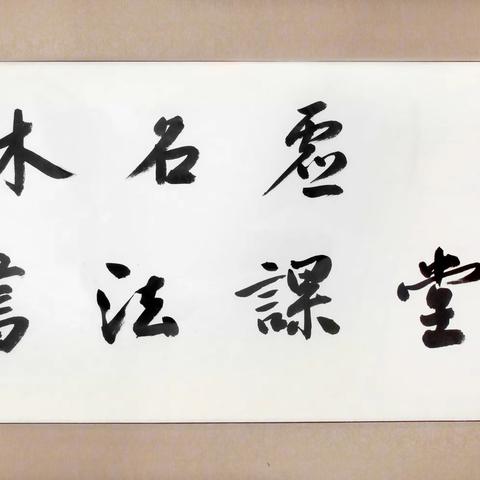 木名虚
書法課堂